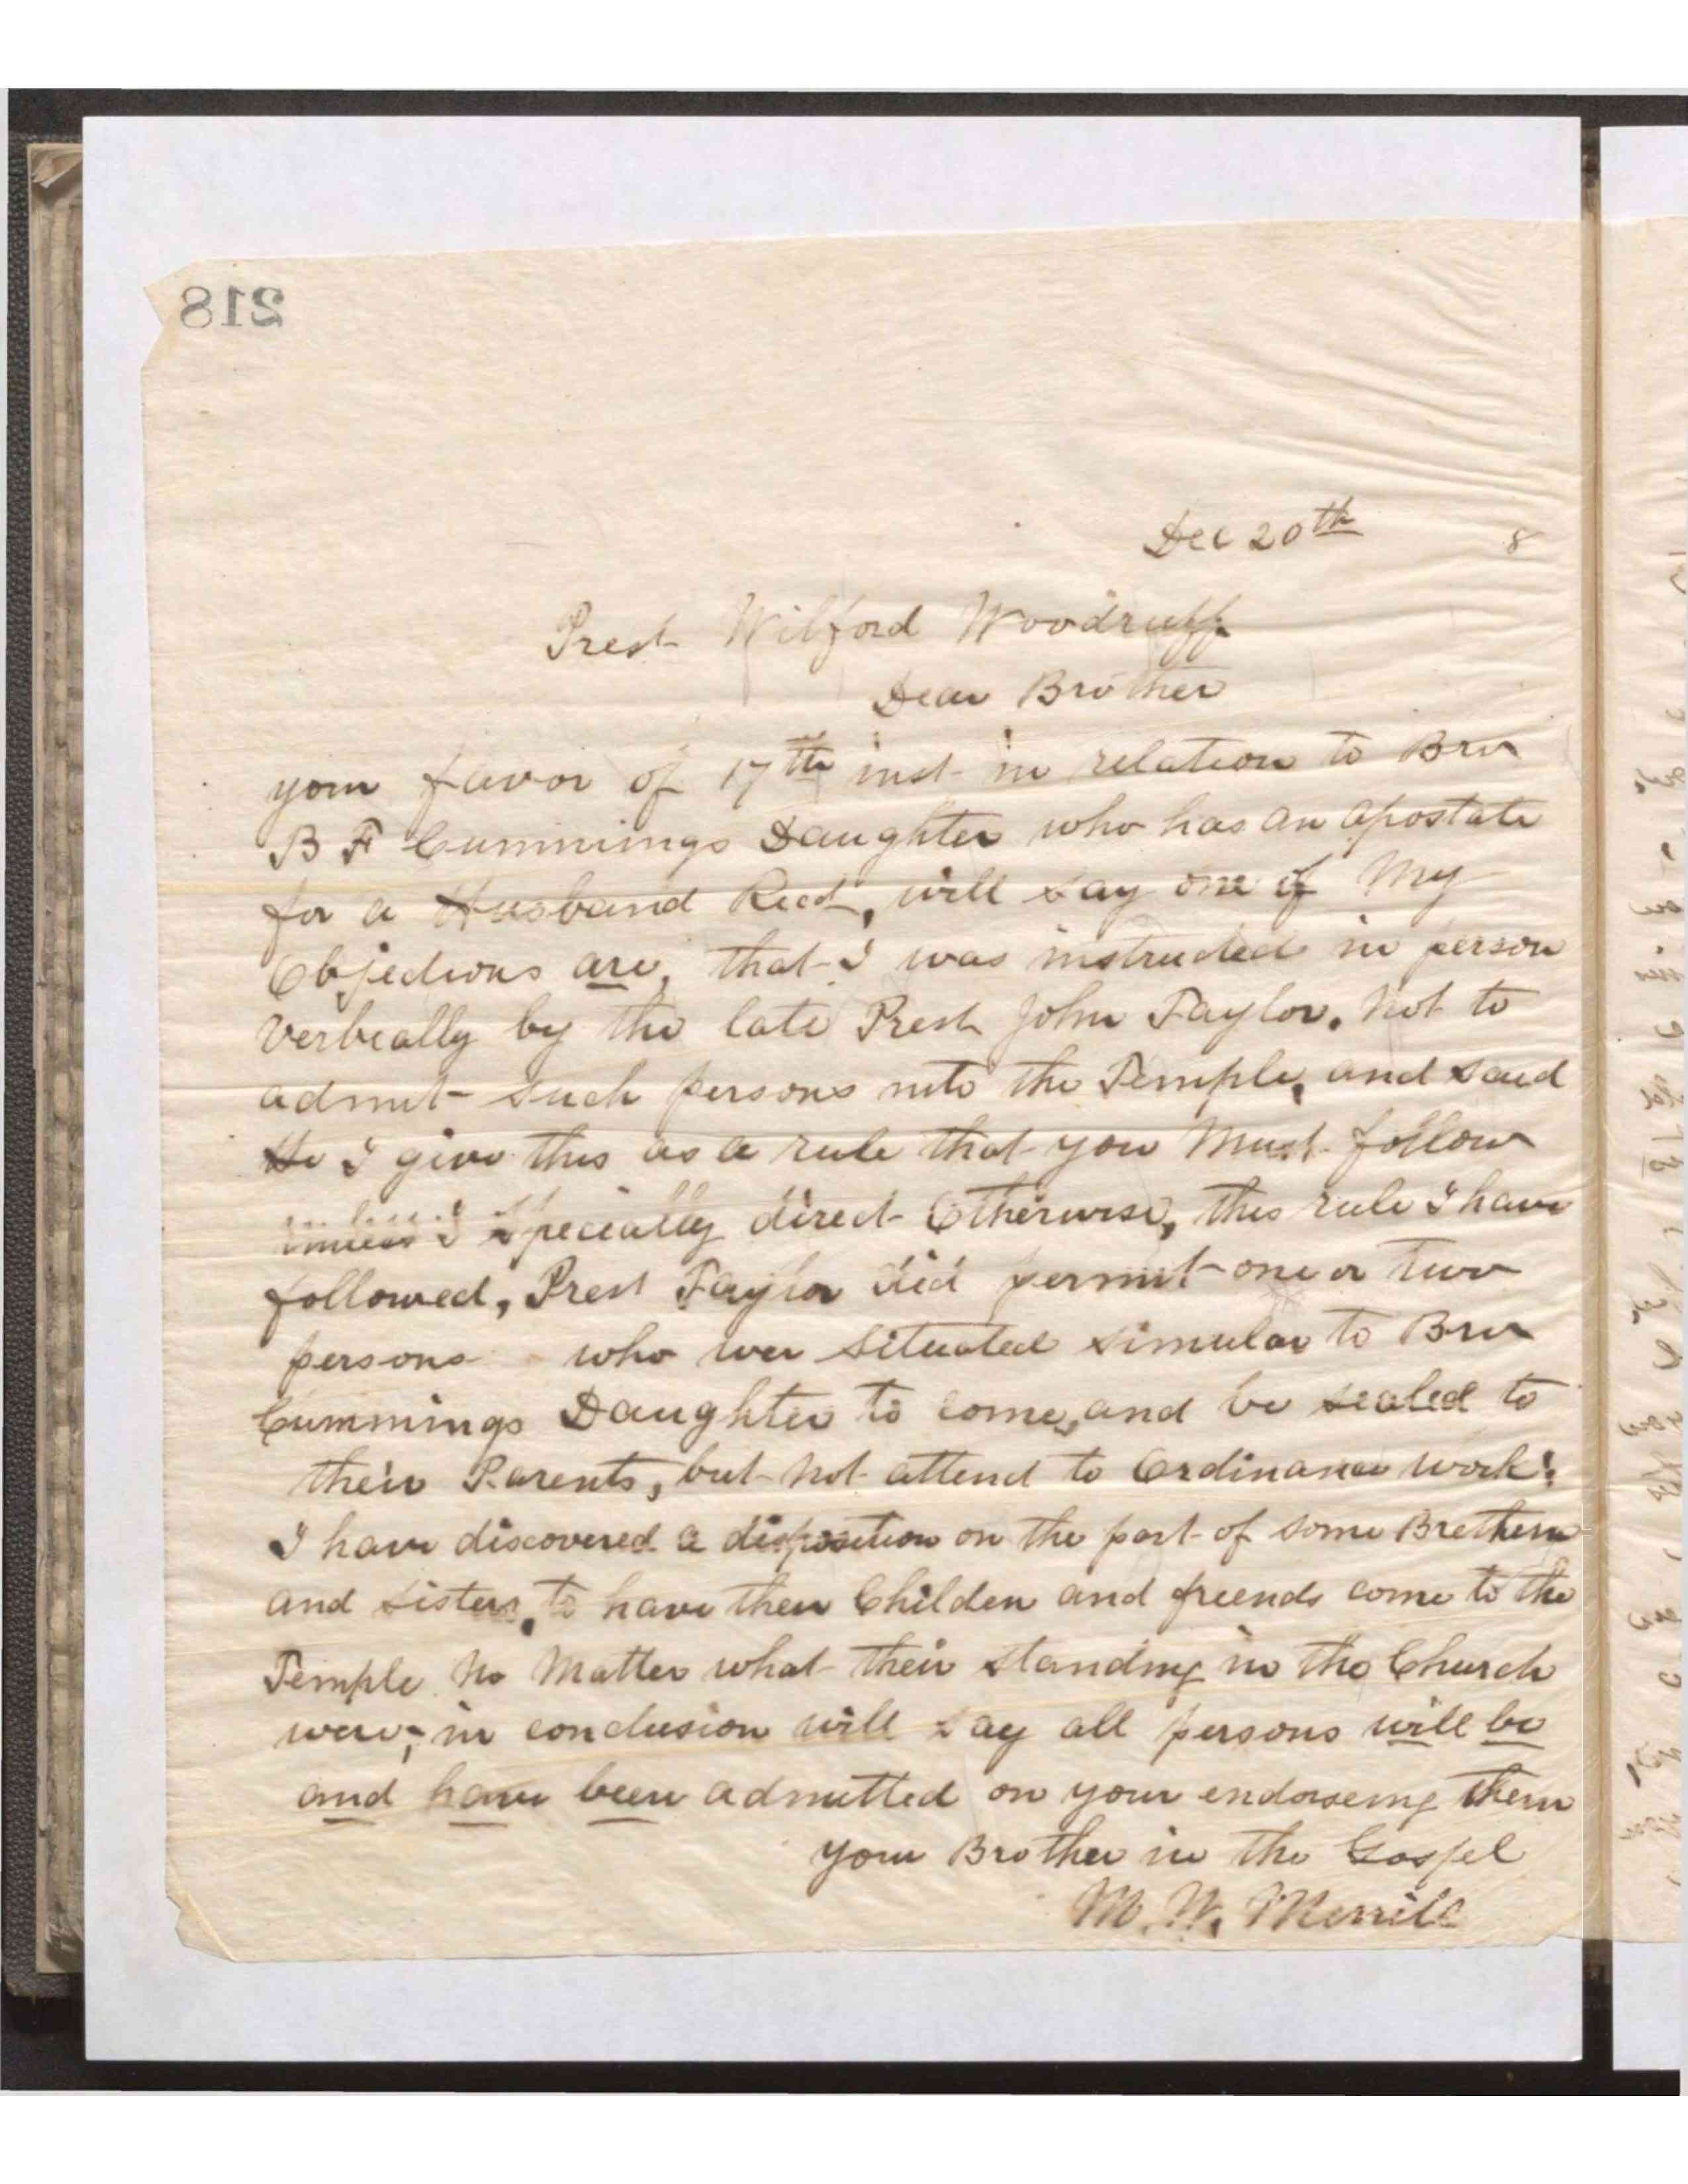 218
Dec 20th 8
Prest Wilford Woodruff
Dear Brother
your favor of 17th inst in relation to Bro
B F Cummings Daughter who has an apostate
for a Husband Recd, will say one of My
Objections are, that I was instructed in person
verbeally by the late Prest John Taylor. Not to
admit such persons into the Temple, and said
He I give this as a rule that you Must follow
unless I specially direct Otherwise, this rule I have
followed, Prest Taylor did permit one or two
persons who wer situated simular to Bro
Cummings Daughter to come, and be sealed to
their Parents, but not attend to Ordinance work.
I have discovered a disposition on the part of some Brethern
and sisters, to have their Children and friends come to the
Temple No Matter what their standing in the Church
were, in conclusion will say all persons will be
and have been admitted on your endorseing them
your Brother in the Gospel
M. W. Merrill